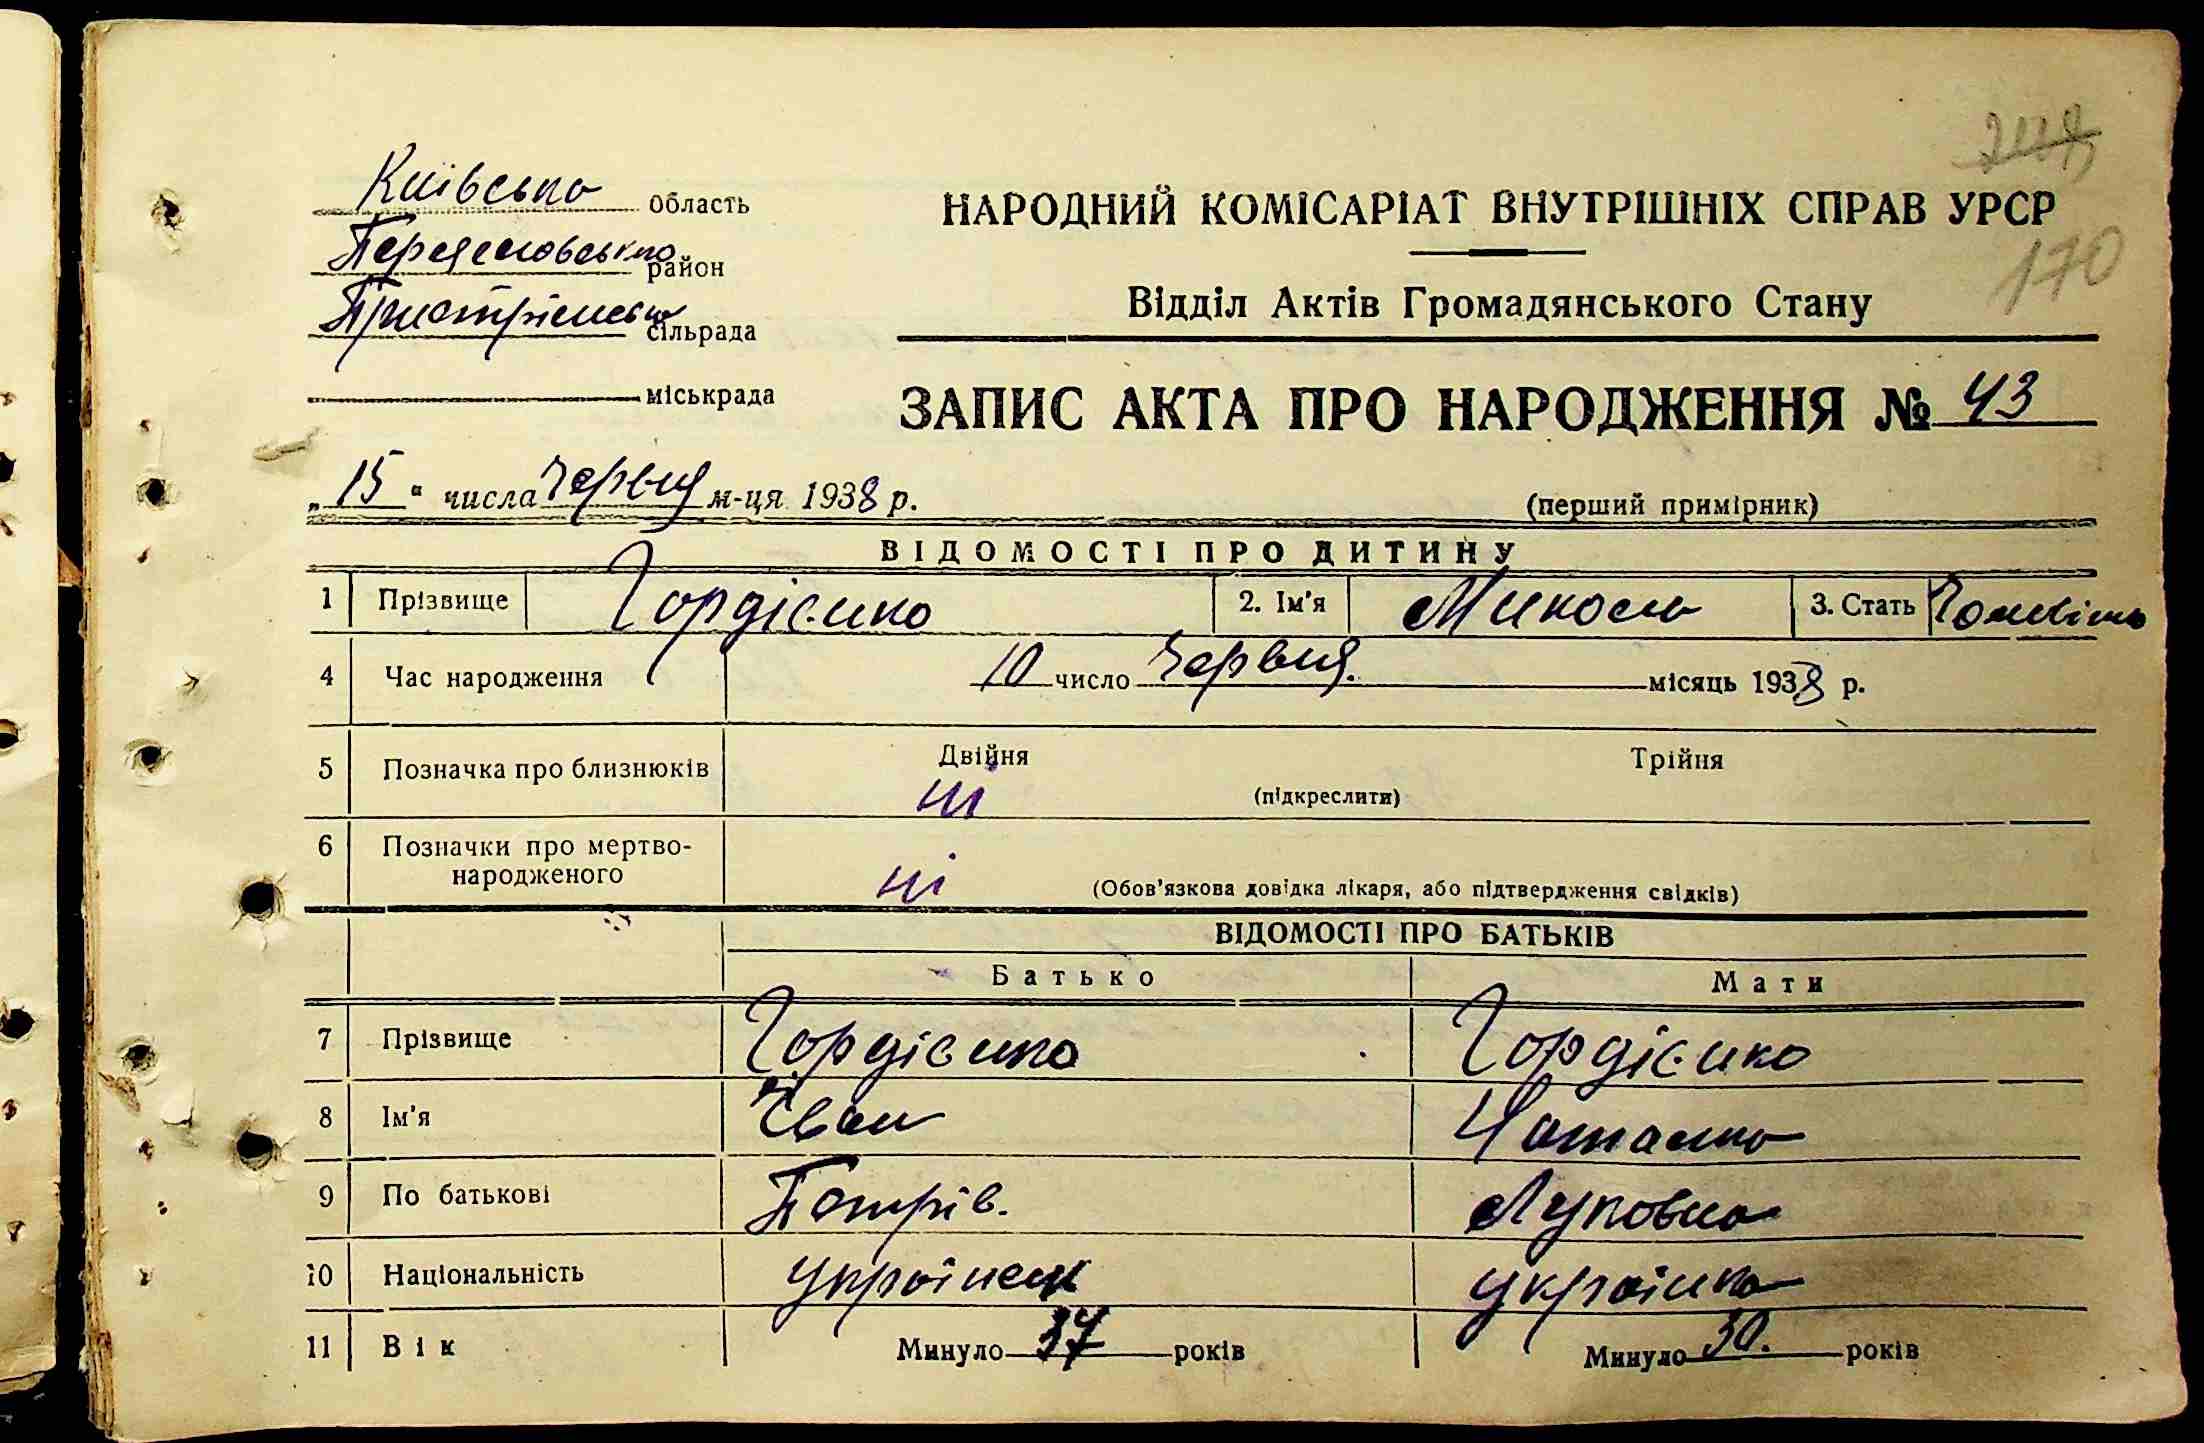 170
Київська область
НАРОДНИЙ КОМІСАРІАТ ВНУТРІШНІХ СПРАВ УРСР
Переяславська район
Відділ Актів Громадянського Стану
сільрада
міськрада
ЗАПИС АКТА ПРО НАРОДЖЕННЯ № 43
„15“ числа червня м-ця 1938 р.
(перший примірник)
ВІДОМОСТІ ПРО ДИТИНУ
1 Прізвище Гордієнко 2. Ім'я Микола 3. Стать
4 Час народження 10 число червня. місяць 1938 р.
5 Позначка про близнюків Двійня Трійня
ні (підкреслити)
6 Позначки про мертво-
народженого ні (Обов'язкова довідка лікаря, або підтвердження свідків)
ВІДОМОСТІ ПРО БАТЬКІВ
Батько Мати
7 Прізвище Гордієнко Гордієнко
8 Ім'я Іван Наталка
9 По батькові Петрів. Луповна
10 Національність українець українка
11 Вік Минуло 37 років Минуло 30. років